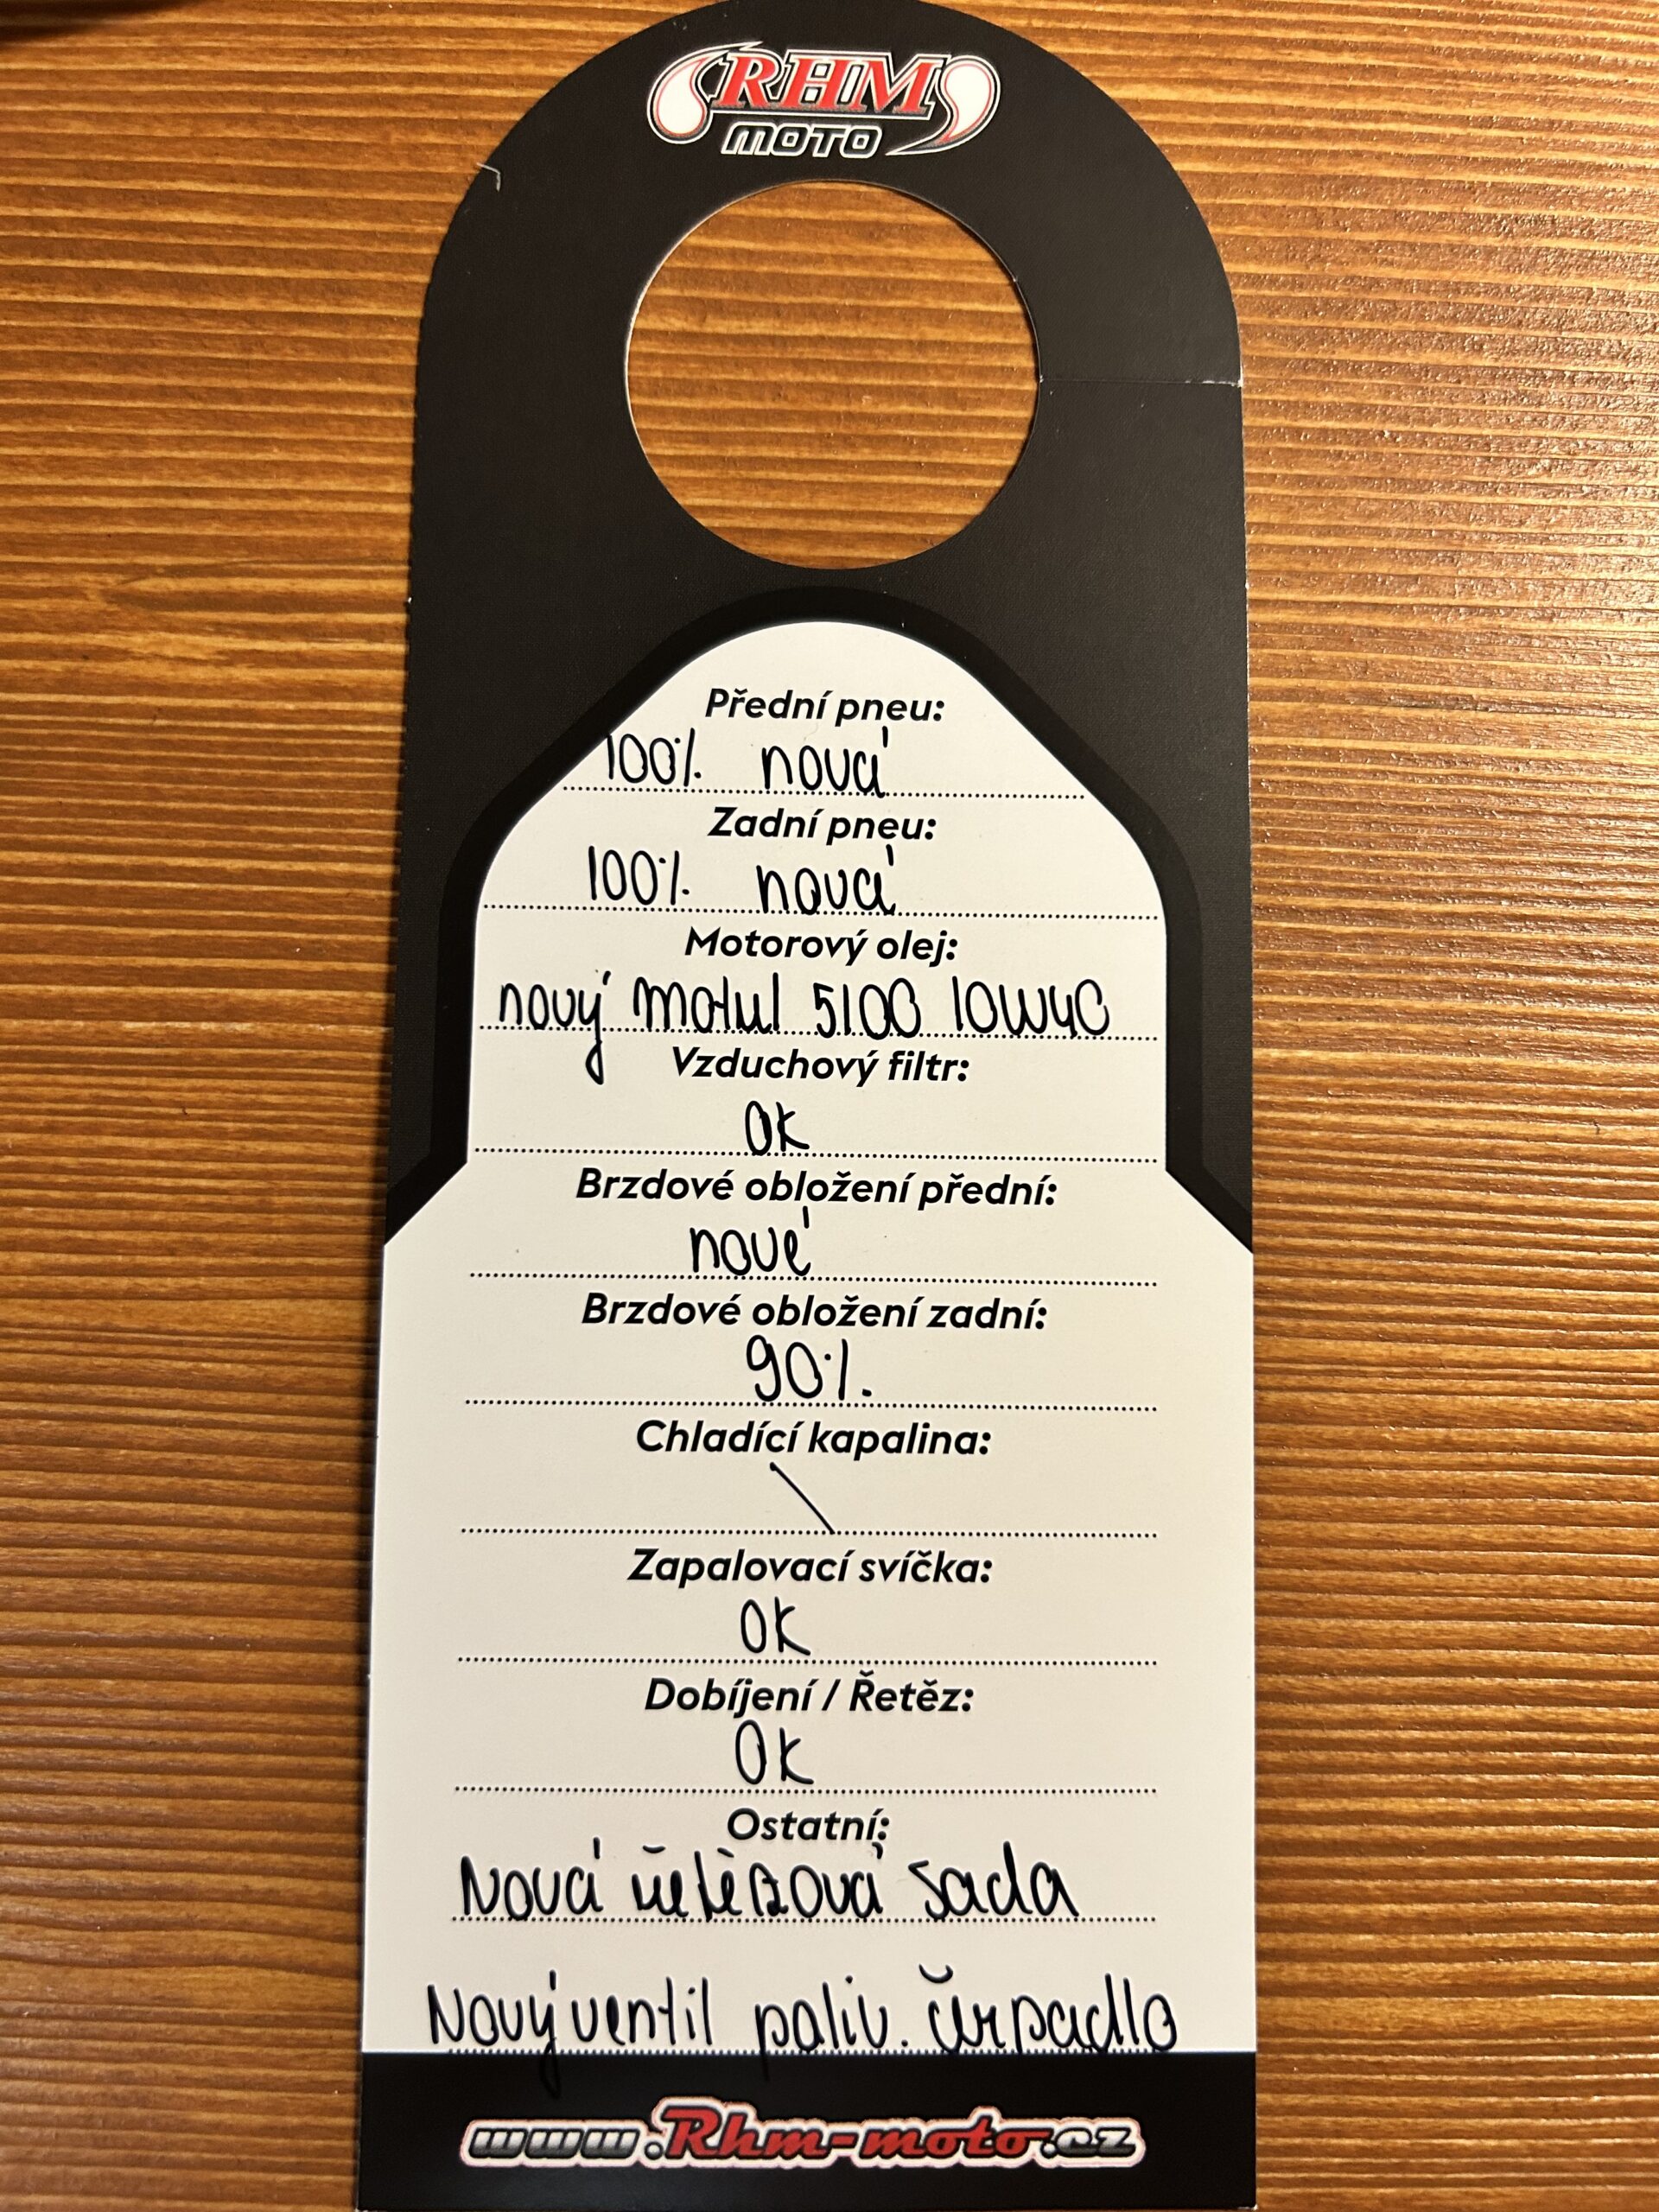 RHM
MOTO
Přední pneu:
100% nová
Zadní pneu:
100% nová
Motorový olej:
nový motul 5100 10W40
Vzduchový filtr:
OK
Brzdové obložení přední:
nové
Brzdové obložení zadní:
90%.
Chladící kapalina:
\
Zapalovací svíčka:
OK
Dobíjení / Řetěz:
OK
Ostatní:
Nová řetězová sada
Nový ventil paliv. čerpadlo
www.Rhm-moto.cz